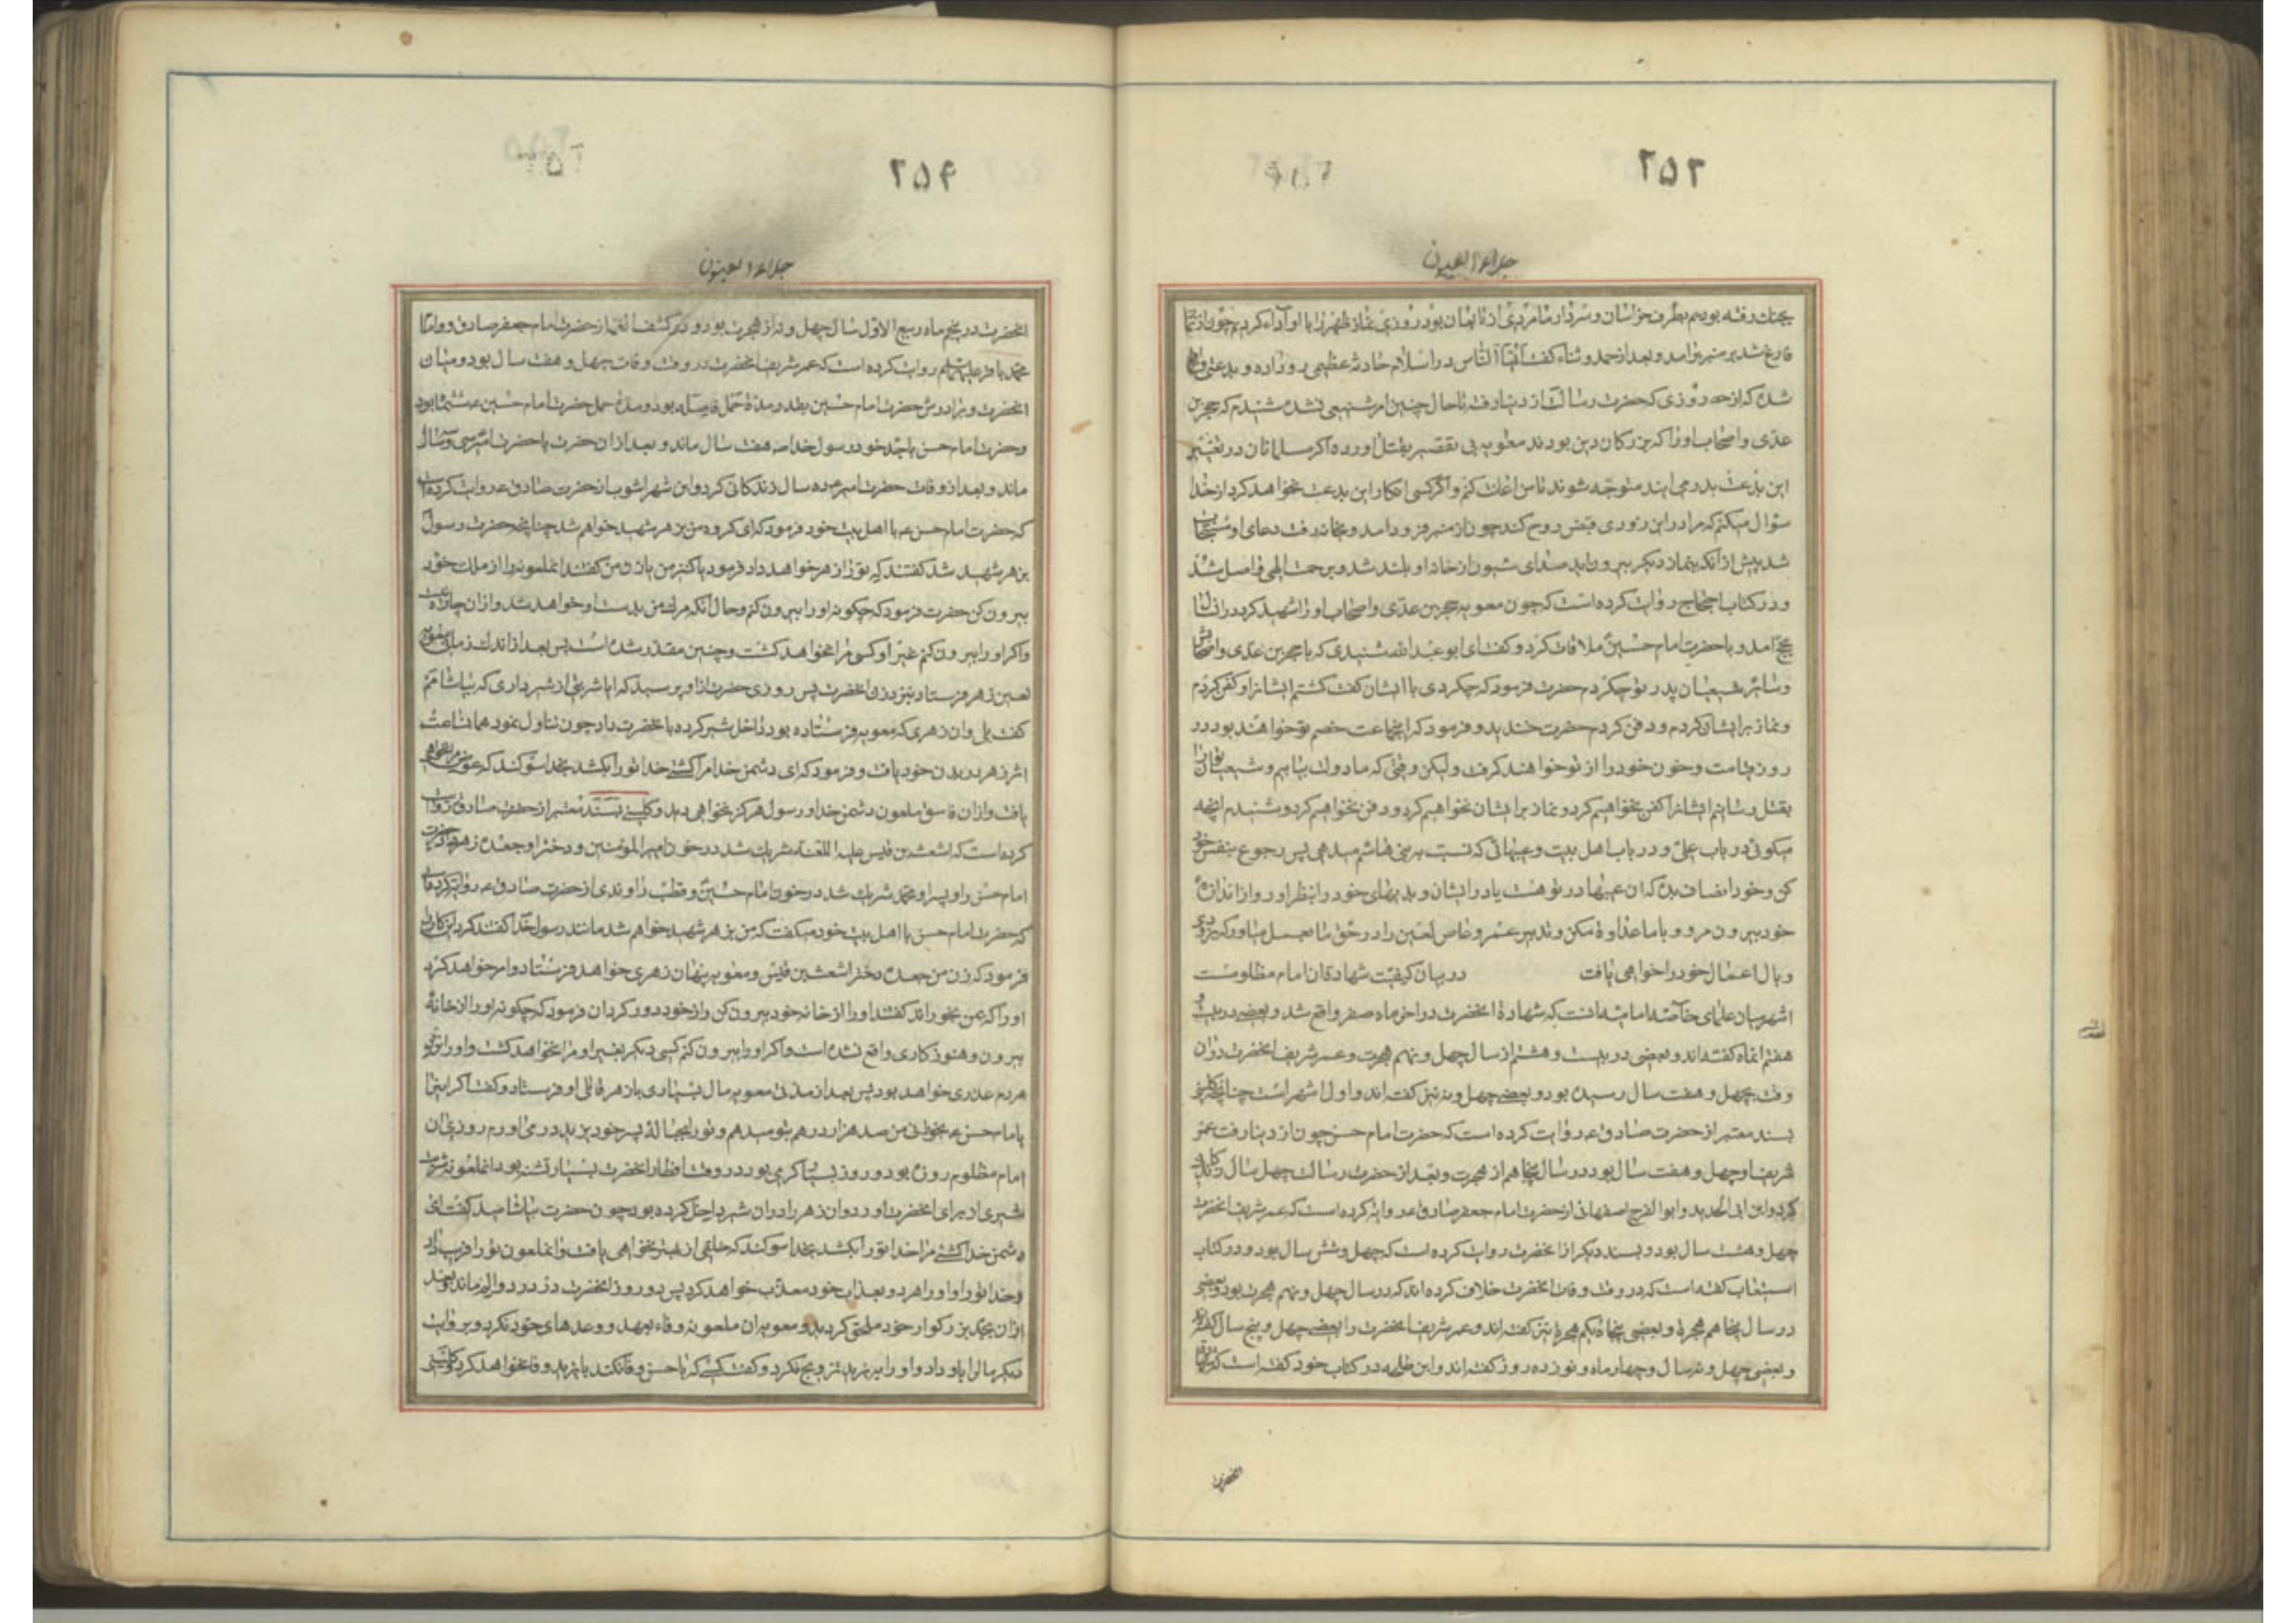 ۲۵۳
جلاء العیون
بجنك رفته بودیم بطرف خراسان و سردار ما مردی از تابعان بود روزی نماز ظهر را با او اداء کردیم چون از نماز
فارغ شد بر منبر برامد و بعد از حمد و ثناء کفت ایها الناس در اسلام حادثه عظیمی رو داده و بدعتی واقع
شده که از روزی که حضرت رسالت از دنیا رفته تا حال چنین امر شنیعی نشده شنیدم که حجر بن
عدی و اصحاب او را که بزرکان دین بودند معویه بی تقصیر بقتل اورده اکر مسلمانان در تغییر
این بدعت بدر می ایند متوجه شوند تا من اعانت کنم و اکر کسی انکار این بدعت نخواهد کرد از خدا
سؤال میکنم که مرا در این زودی قبض روح کند چون از منبر فرود امد و بخانه رفت دعای او مستجاب
شد پیش از انکه بنماز دیکر بیرون اید صدای شیون از خانه او بلند شد و برحمت الهی واصل شد
و در کتاب احتجاج روایت کرده است که چون معویه حجر بن عدی و اصحاب او را شهید کرد در ان سال
بحج امد و با حضرت امام حسین ملاقات کرد و کفت ای ابو عبد الله شنیدی که با حجر بن عدی و اصحابش
و سایر شیعیان پدر تو چکردم حضرت فرمود که چکردی با ایشان کفت کشتم ایشانرا و کفن کردم
و نماز بر ایشان کردم و دفن کردم حضرت خندید و فرمود که اینجماعت خصم تو خواهند بود در
روز قیامت و خون خود را از تو خواهند کرفت ولیکن وقتی که ما دولت بیابیم و شیعیان ترا
بقتل رسانیم ایشانرا کفن نخواهیم کرد و نماز بر ایشان نخواهیم کرد و دفن نخواهیم کرد و شنیدم انچه
میکوئی در باب علی و در باب اهل بیت و عیبهائی که نسبت به بنی هاشم میدهی پس رجوع بنفس خود
کن و خود انصاف بده که ان عیبها در تو هست یا در ایشان و بدیهای خود را بنظر اور و از اندازهٔ
خود بیرون مرو و با ما عداوة مکن و تدبیر عمر و عاص لعین را در حق ما بعمل میاور که بزودی
وبال اعمال خود را خواهی یافت در بیان کیفیت شهادة ان امام مظلومست
اشهر میان علمای خاصه امامیه انست که شهادة انحضرت در اخر ماه صفر واقع شد و بعضی در بیست و
هفتم انماه کفته اند و بعضی در بیست و هشتم از سال چهل و نهم هجرت و عمر شریف انحضرت در ان
وقت بچهل و هفت سال رسیده بود و بعضی چهل و نه نیز کفته اند و اول اشهر است چنانچه کلینی
بسند معتبر از حضرت صادق ع روایت کرده است که حضرت امام حسن چون از دنیا رفت عمر
شریف او چهل و هفت سال بود در سال پنجاهم از هجرت و بعد از حضرت رسالت چهل سال زندکانی
کرد و ابن ابی الحدید و ابو الفرج اصفهانی از حضرت امام جعفر صادق ع روایة کرده است که عمر شریف انحضرت
چهل و هشت سال بود و بسند دیکر از انحضرت روایت کرده است که چهل و شش سال بود و در کتاب
استیعاب کفته است که در وقت وفات انحضرت خلاف کرده اند که در سال چهل و نهم هجرت بود و بعضی
در سال پنجاهم هجرة و بعضی پنجاه یکم هجرة نیز کفته اند و عمر شریف انحضرت را بعضی چهل و پنج سال کفته اند
و بعضی چهل و نه سال و چهار ماه و نوزده روز کفته اند و ابن طلحه در کتاب خود کفته است که وفات
انحضرت
۲۵۴
جلاء العیون
انحضرت در پنجم ماه ربیع الاول سال چهل و نه از هجرت بود و در کشف الغمه از حضرت امام جعفر صادق و امام
محمد باقر علیهما السلم روایت کرده است که عمر شریف انحضرت در وقت وفات چهل و هفت سال بود و میان
انحضرت و برادرش حضرت امام حسین بقدر مدة حمل فاصله بود و مدة حمل حضرت امام حسین ع ششماه بود
و حضرت امام حسن با جد خود رسول خدا ص هفت سال ماند و بعد از ان حضرت با حضرت امیر سی سال
ماند و بعد از وفات حضرت امیر ع ده سال زندکانی کرد و ابن شهر اشوب از حضرت صادق ع روایت کرده است
که حضرت امام حسن ع با اهل بیت خود فرمود که ای کروه من بزهر شهید خواهم شد چنانچه حضرت رسول
بزهر شهید شد کفتند که تو را زهر خواهد داد فرمود یا کنیز من یا زن من کفتند انملعونه را از ملك خود
بیرون کن حضرت فرمود که چکونه او را بیرون کنم و حال انکه مرك من بدست او خواهد شد و از ان چاره نیست
و اکر او را بیرون کنم غیر او کسی مرا نخواهد کشت و چنین مقدر شده است پس بعد از اندك زمانی معویه
لعین زهر فرستاد بنزد زن انحضرت پس روزی حضرت از او پرسید که ایا شربتی از شیر داری که بیاشامم
کفت بلی و ان زهری که معویه فرستاده بود داخل شیر کرده بانحضرت داد چون تناول نمود همان ساعت
اثر زهر در بدن خود یافت و فرمود که ای دشمن خدا مرا کشتی خدا تو را بکشد بخدا سوکند که عوض من نخواهی
یافت و از ان فاسق ملعون دشمن خدا و رسول هرکز نخواهی دید و کلینی بسند معتبر از حضرت صادق روایت
کرده است که اشعث بن قیس علیه اللعنة شریك شد در خون امیر المؤمنین و دختر او جعده زهر داد حضرت
امام حسن را و پسر او محمد شریك شد در خون امام حسین و قطب راوندی از حضرت صادق ع روایت کرده است
که حضرت امام حسن با اهل بیت خود میکفت که من بزهر شهید خواهم شد مانند رسول خدا کفتند که این کار را
فرمود که زن من جعده دختر اشعث بن قیس و معویه پنهان زهری خواهد فرستاد و امر خواهد کرد
او را که بمن بخوراند کفتند او را از خانه خود بیرون کن و از خود دور کردان فرمود که چکونه او را از خانه
بیرون و هنوز کاری واقع نشده است و اکر او را بیرون کنم کسی دیکر بغیر او مرا نخواهد کشت و او را نزد
مردم عذری خواهد بود پس بعد از مدتی معویه مال بسیاری با زهر قاتلی او فرستاد و کفت اکر اینرا
بامام حسن ع بخورانی من صد هزار درهم بتو میدهم و تو را بحبالهٔ پسر خود یزید در می اورم روزی ان
امام مظلوم روزه بود و روز بسیار کرمی بود در وقت افطار انحضرت بسیار تشنه بود انملعونه شربت
شیری از برای انحضرت اورد و ان زهر را در ان شیر داخل کرده بود چون حضرت بیاشامید کفت ای
دشمن خدا کشتی مرا خدا تو را بکشد بخدا سوکند که خلفی از من بهتر نخواهی یافت و انملعون تو را فریب داد
و خدا تو را و او را هر دو بعذاب خود معذب خواهد کرد پس دو روز انحضرت در درد و الم ماند و بعد
از ان بجد بزرکوار خود ملحق کردید و معویه بان ملعونه وفاء بعهد و وعدهای خود نکرد و بروایت
دیکر مال را باو داد و او را به یزید تزویج نکرد و کفت کسی که با حسن وفا نکند با یزید وفا نخواهد کرد کلینی